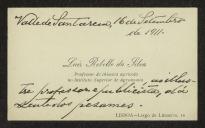 Valle de Santarem, 16 de Setembro
de 1911.
Luis Rebello da Silva
Professor de chimica agricola
no Instituto Superior de Agronomia
tre professor e publicista, dá
sentidos pesames.
LISBOA—Largo do Limoeiro, 10